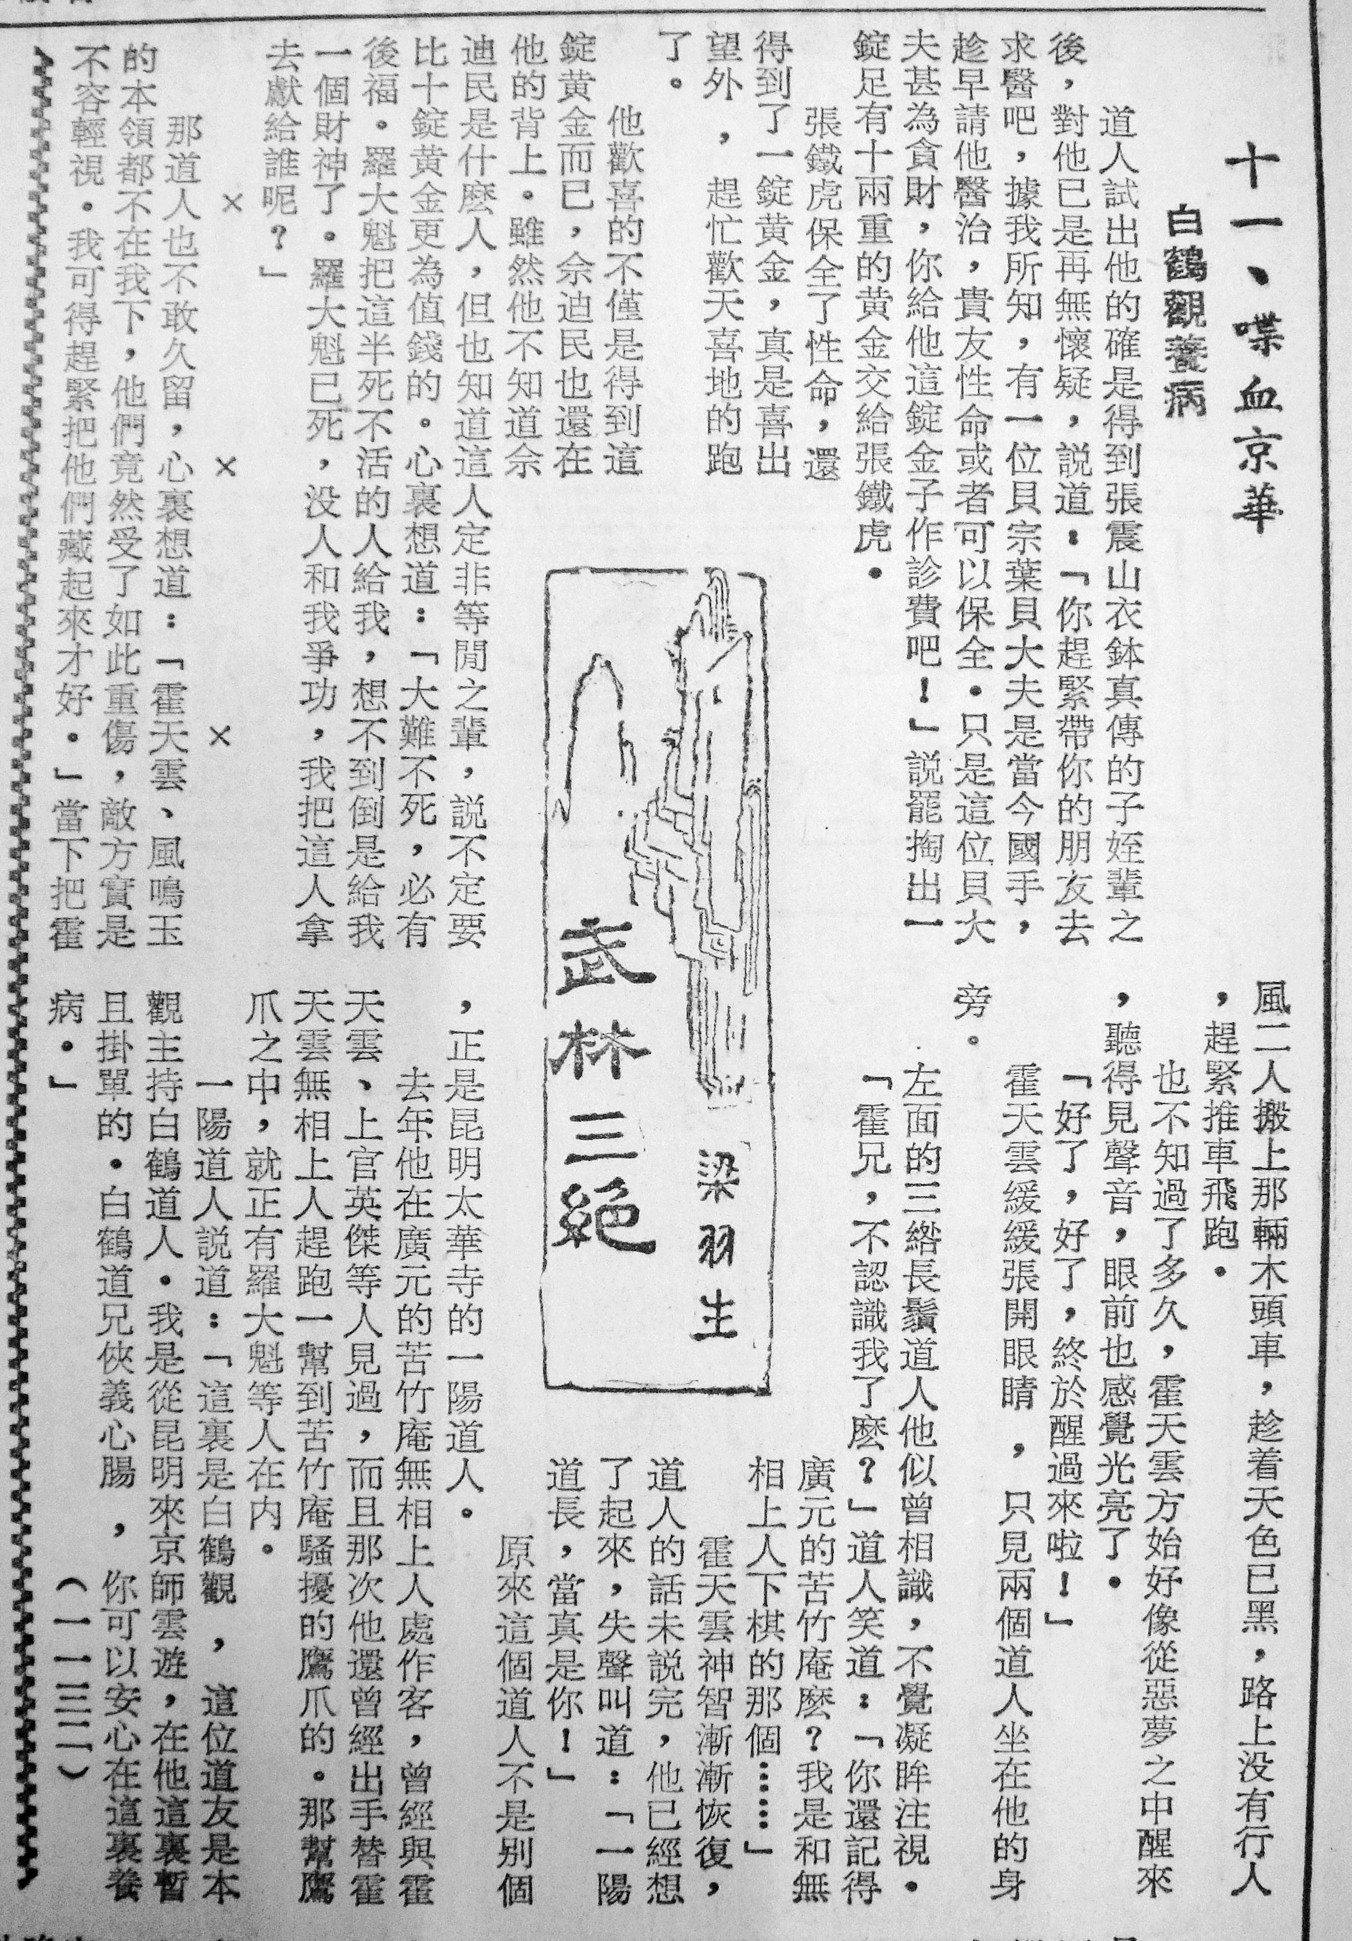 十一、喋血京華
白鶴觀養病
道人試出他的確是得到張震山衣鉢真傳的子姪輩之
後，對他已是再無懷疑，説道：「你趕緊帶你的朋友去
求醫吧，據我所知，有一位貝宗葉貝大夫是當今國手，
趁早請他醫治，貴友性命或者可以保全。只是這位貝大
夫甚為貪財，你給他這錠金子作診費吧！」説罷掏出一
錠足有十兩重的黄金交給張鐵虎。
張鐵虎保全了性命，還
得到了一錠黄金，真是喜出
望外，趕忙歡天喜地的跑
了。
他歡喜的不僅是得到這
錠黄金而已，余迫民也還在
他的背上。雖然他不知道余
迪民是什麽人，但也知道這人定非等閒之輩，説不定要
比十錠黄金更為值錢的。心裏想道：「大難不死，必有
後福。羅大魁把這半死不活的人給我，想不到倒是給我
一個財神了。羅大魁已死，没人和我爭功，我把這人拿
去獻給誰呢？」
×　×　×
那道人也不敢久留，心裏想道：「霍天雲、風鳴玉
的本領都不在我下，他們竟然受了如此重傷，敵方實是
不容輕視。我可得趕緊把他們藏起來才好。」當下把霍
風二人搬上那輛木頭車，趁着天色已黑，路上没有行人
，趕緊推車飛跑。
也不知過了多久，霍天雲方始好像從惡夢之中醒來
，聽得見聲音，眼前也感覺光亮了。
「好了，好了，終於醒過來啦！」
霍天雲緩緩張開眼睛，只見兩個道人坐在他的身
旁。
左面的三綹長鬚道人他似曾相識，不覺凝眸注視。
「霍兄，不認識我了麽？」道人笑道：「你還記得
廣元的苦竹庵麽？我是和無
相上人下棋的那個……」
霍天雲神智漸漸恢復，
道人的話未説完，他已經想
了起來，失聲叫道：「一陽
道長，當真是你！」
原來這個道人不是别個
，正是昆明太華寺的一陽道人。
去年他在廣元的苦竹庵無相上人處作客，曾經與霍
天雲、上官英傑等人見過，而且那次他還曾經出手替霍
天雲無相上人趕跑一幫到苦竹庵騷擾的鷹爪的。那幫鷹
爪之中，就正有羅大魁等人在内。
一陽道人説道：「這裏是白鶴觀，這位道友是本
觀主持白鶴道人。我是從昆明來京師雲遊，在他這裏暫
且掛單的。白鶴道兄俠義心腸，你可以安心在這裏養
病。」
（一一三二）
武林三絕
梁羽生